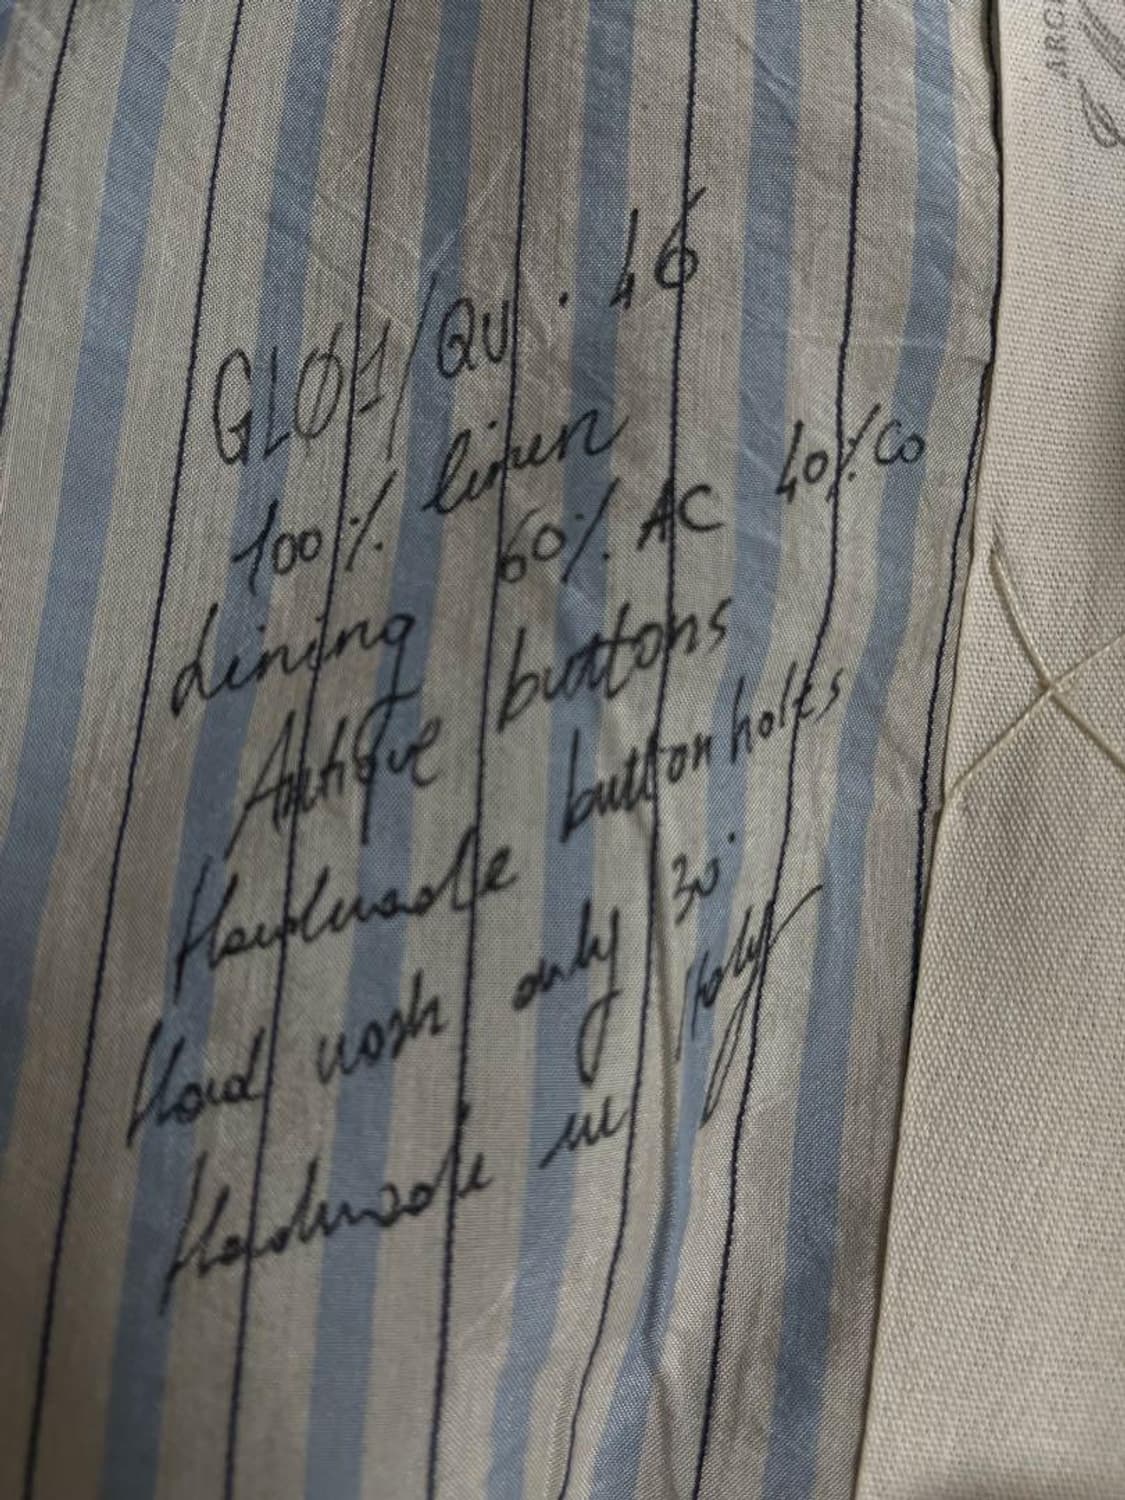 GLØ1/QU. 46
100% linen
Lining 60% AC 40% CO
Antique buttons
Handmade buttonholes
Hand wash only 30°
Handmade in Italy
ARC